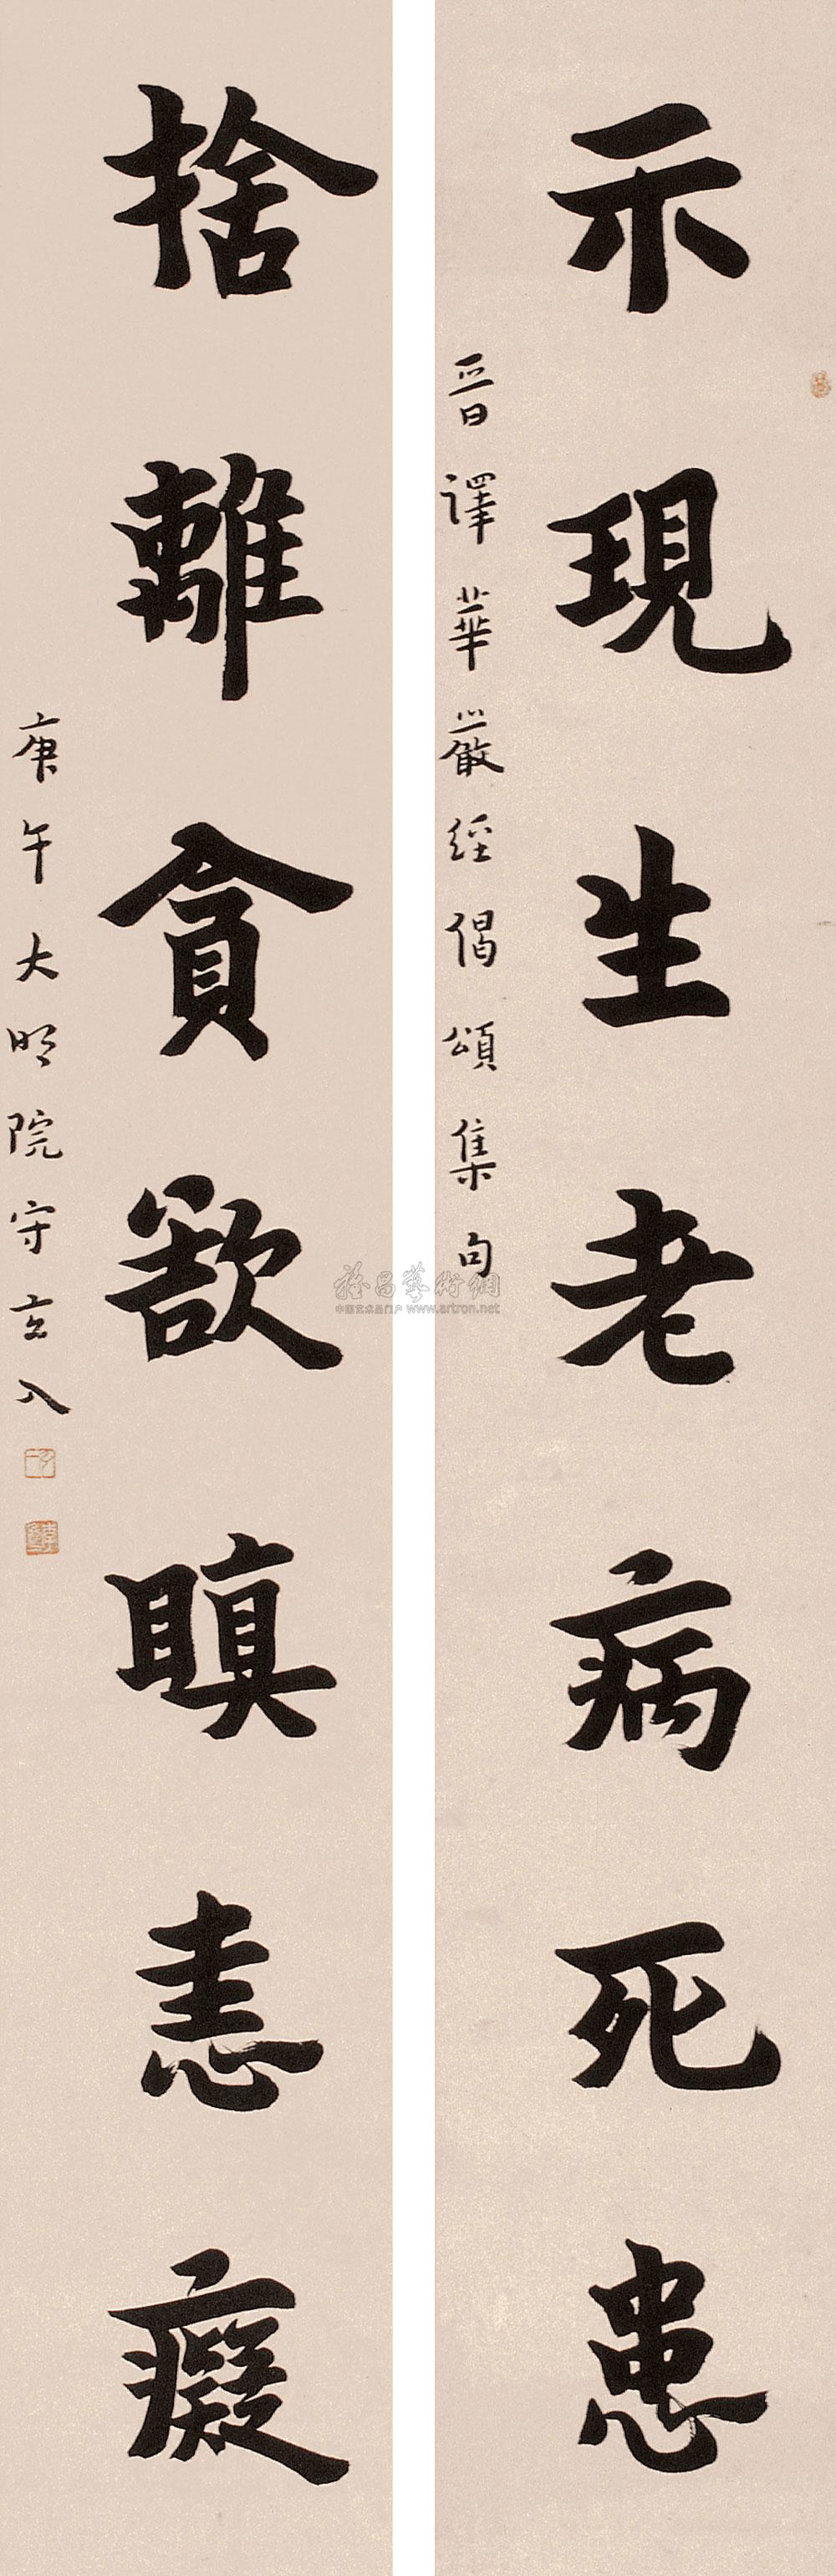 示現生老病死患
晉譯華嚴經偈頌集句
捨離貪欲瞋恚癡
庚午大明院守玄人
雅昌藝術網
中国艺术品门户 www.artron.net